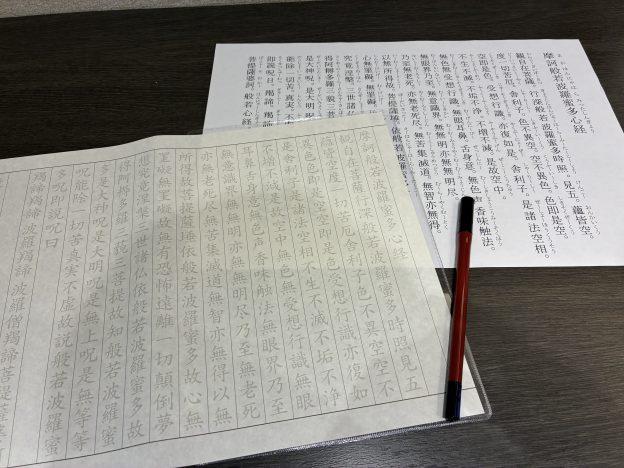 摩訶般若波羅蜜多心経
観自在菩薩。行深般若波羅蜜多時。照。見五。蘊皆空。
度一切苦厄。舎利子。色不異空。空不異色。色即是空。
空即是色。受想行識。亦復如是。舎利子。是諸法空相。
不生不滅。不垢不浄。不増不減。是故空中。
無色無受想行識。無眼耳鼻舌身意。無色声香味触法。
無眼界乃至。無意識界。無無明亦無無明尽。
乃至無老死。亦無老死尽。無苦集滅道。無智亦無得。
以無所得故。菩提薩埵。依般若波羅蜜
心無罣礙。無罣礙
究竟涅槃。三世諸
得阿耨多羅三藐三菩
是大神呪。是大明呪
能除一切苦。真実。不
即説呪曰。羯諦。羯諦
菩提薩婆訶。般若心経。
摩訶般若波羅蜜多心経
観自在菩薩行深般若波羅蜜多時照見五
蘊皆空度一切苦厄舎利子色不異空空不
異色色即是空空即是色受想行識亦復如
是舎利子是諸法空相不生不滅不垢不浄
不増不減是故空中無色無受想行識無眼
耳鼻舌身意無色声香味触法無眼界乃至
無意識界無無明亦無無明尽乃至無老死
亦無老死尽無苦集滅道無智亦無得以無
所得故菩提薩埵依般若波羅蜜多故心無
罣礙無罣礙故無有恐怖遠離一切顛倒夢
想究竟涅槃三世諸仏依般若波羅蜜多故
得阿耨多羅三藐三菩提故知般若波羅蜜
多是大神呪是大明呪是無上呪是無等等
呪能除一切苦真実不虚故説般若波羅蜜
多呪即説呪曰
羯諦羯諦波羅羯諦波羅僧羯諦菩提薩